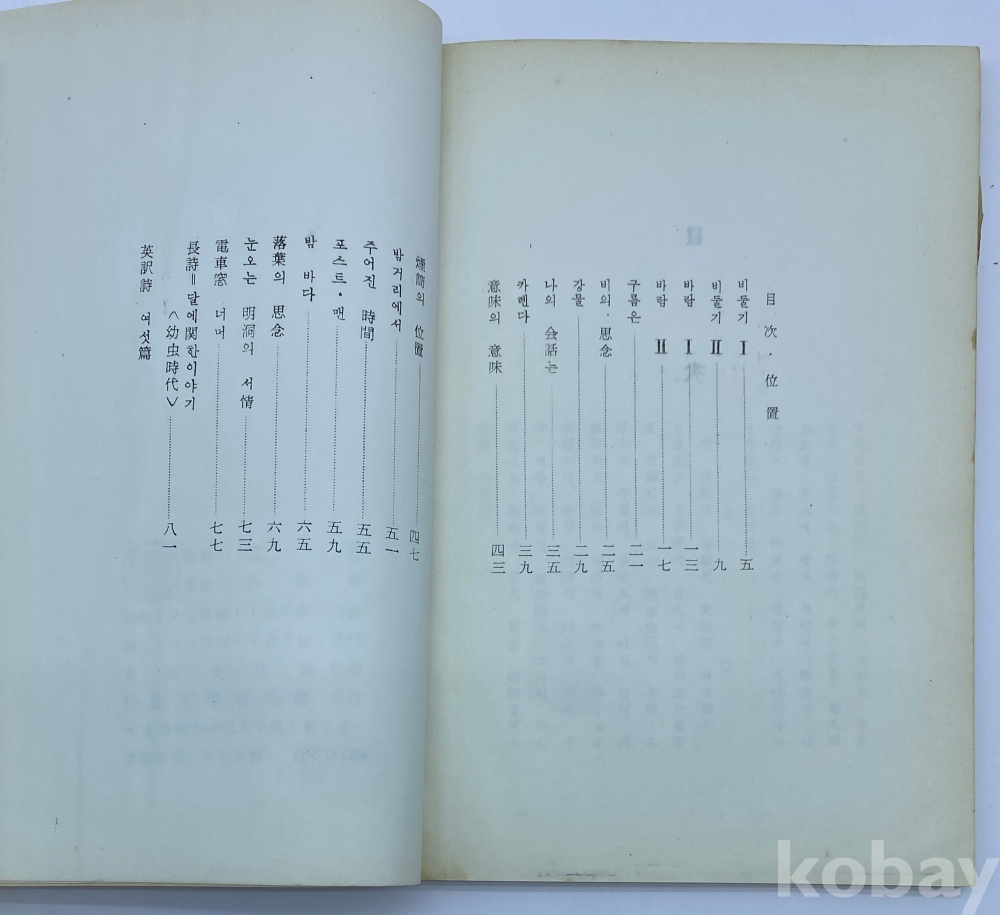 目次・位置
비둘기 Ⅰ 五
비둘기 Ⅱ 九
바람 Ⅰ 一三
바람 Ⅱ 一七
구름은 二一
비의・思念 二五
강물 二九
나의 会話는 三五
카렌다 三九
意味의 意味 四三
의 位置 四七
밤거리에서 五一
주어진 時間 五五
포스트・맨 五九
밤 바다 六五
落葉의 思念 六九
눈오는 明洞의 서情 七三
電車窓 너머 七七
長詩=달에関한이야기
<幼虫時代> 八一
英訳詩 여섯篇
kobay